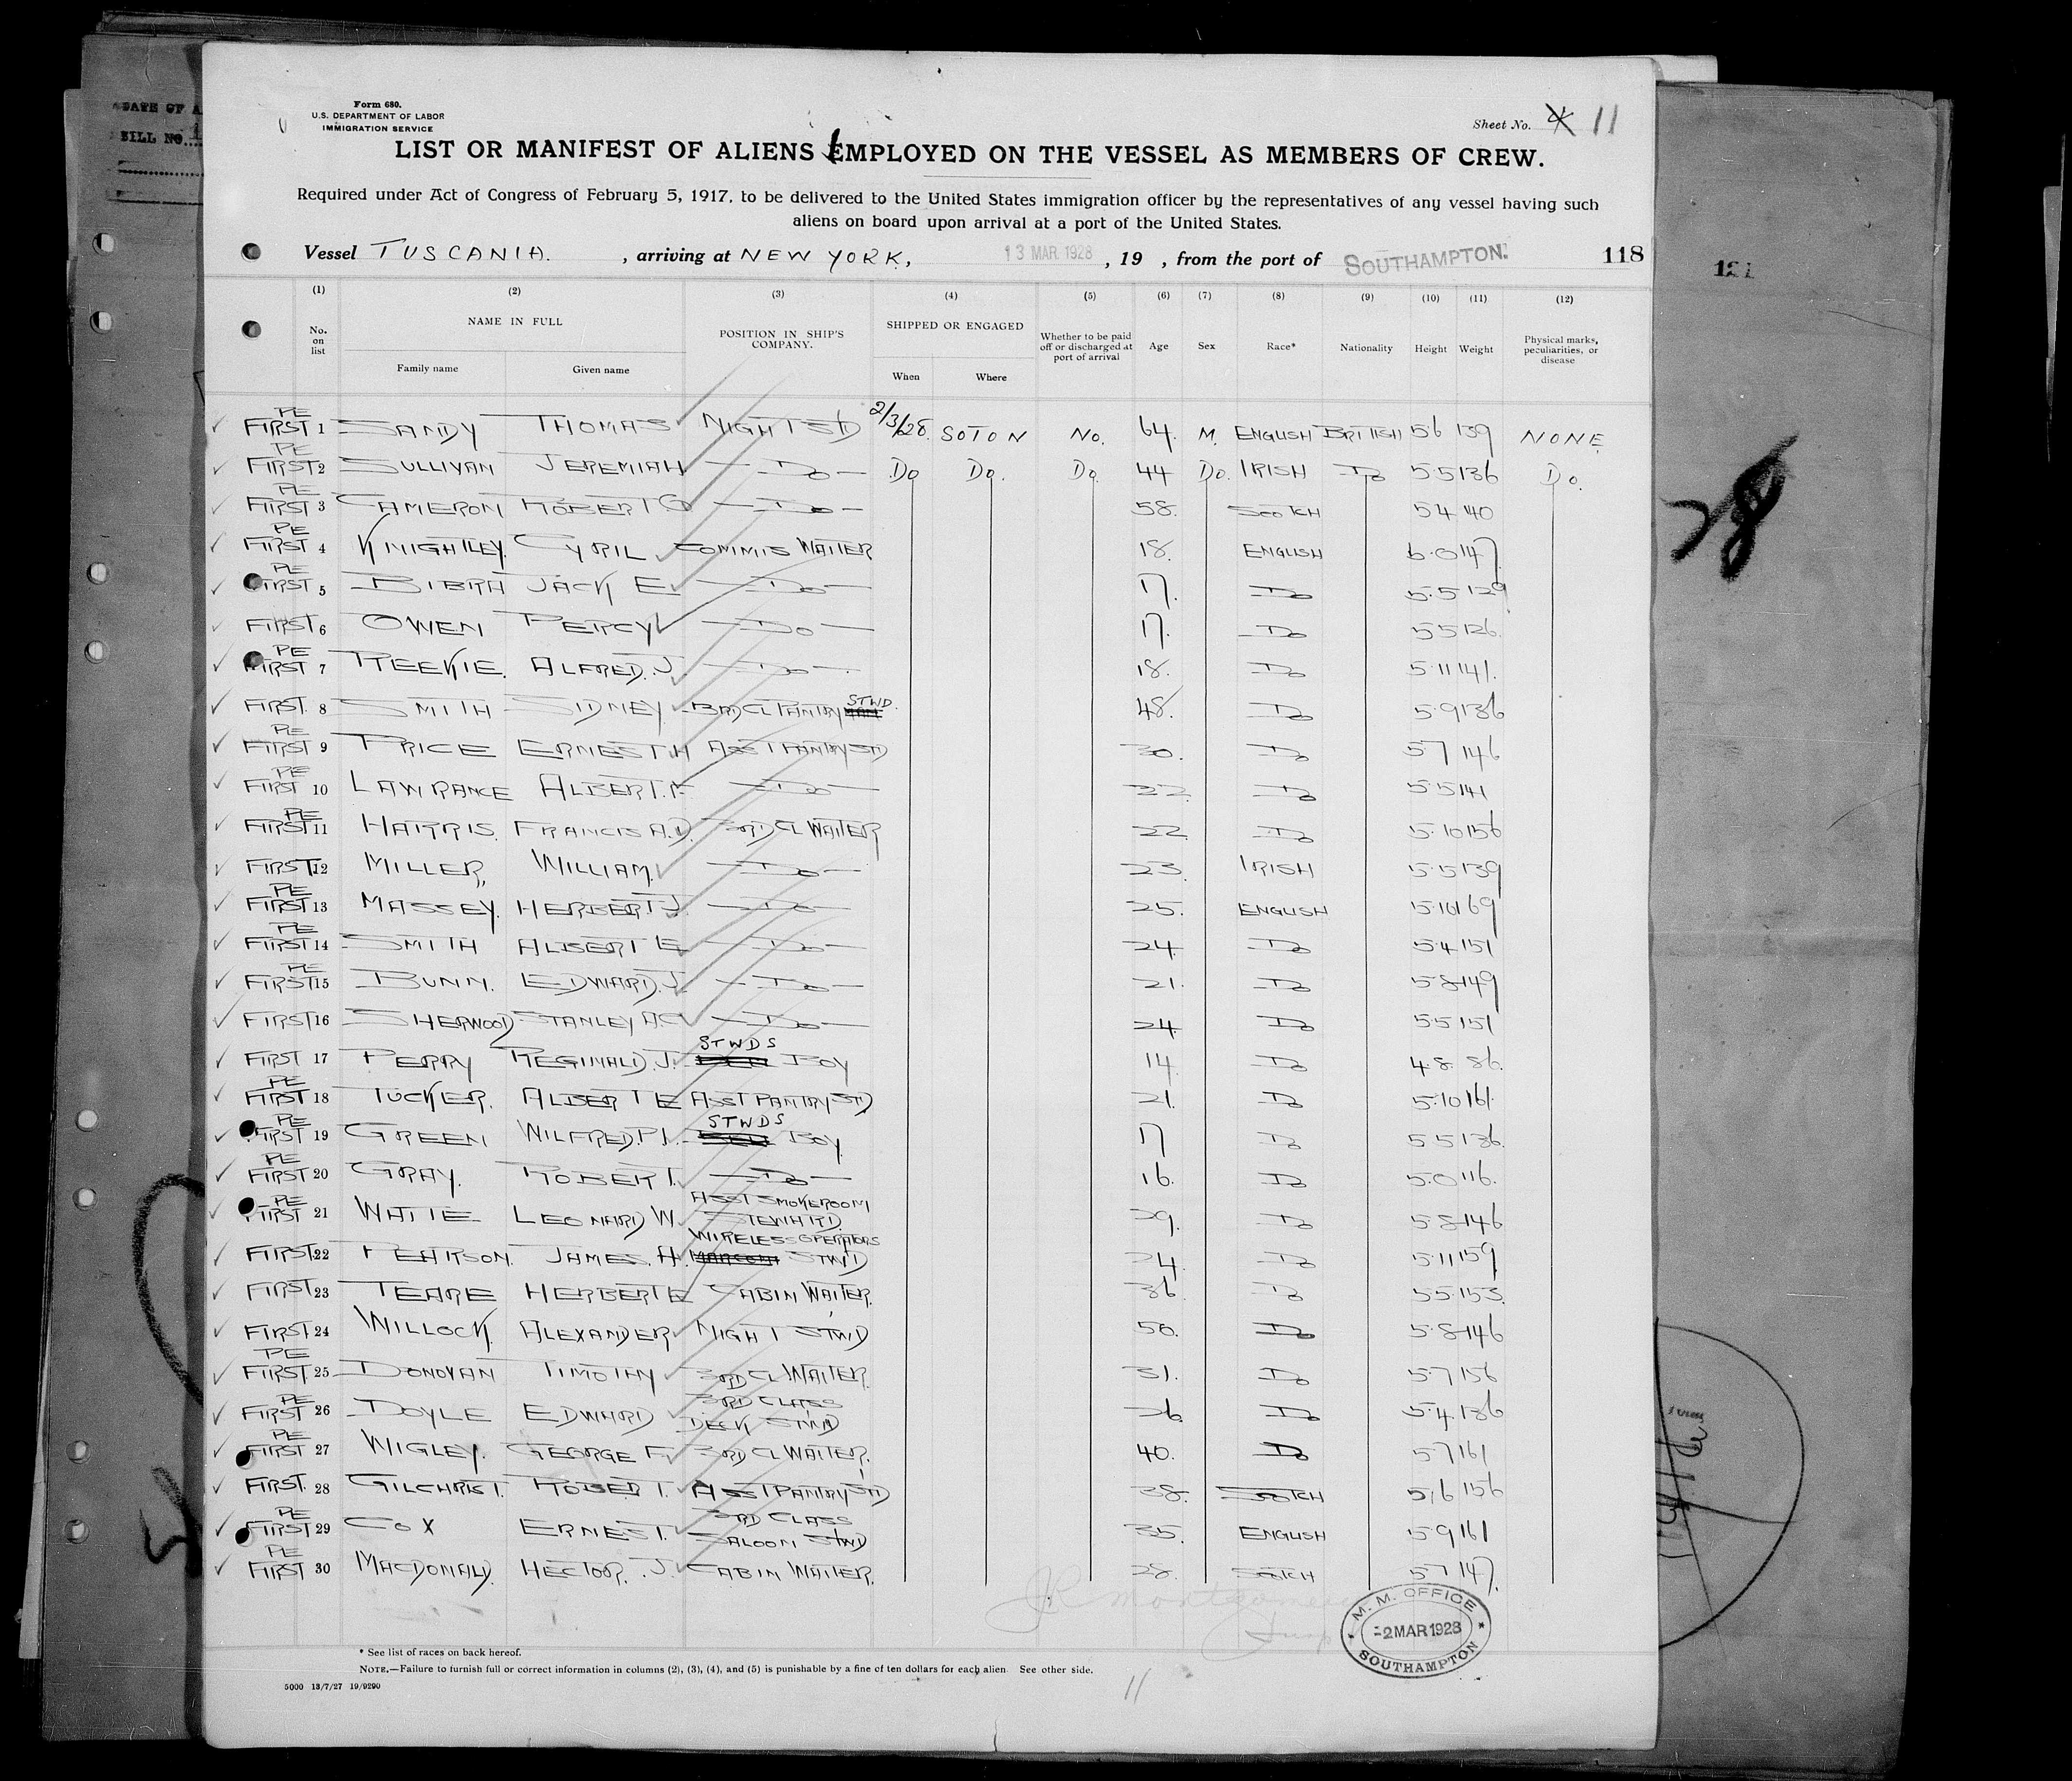 DATE OF A
BILL NO....
Form 680.
U.S. DEPARTMENT OF LABOR
IMMIGRATION SERVICE
Sheet No. 4 11
LIST OR MANIFEST OF ALIENS EMPLOYED ON THE VESSEL AS MEMBERS OF CREW.
Required under Act of Congress of February 5, 1917, to be delivered to the United States immigration officer by the representatives of any vessel having such
aliens on board upon arrival at a port of the United States.
Vessel TUSCANIA. , arriving at NEW YORK, 13 MAR 1928 , 19 , from the port of SOUTHAMPTON. 118
121
(1) (2) (3) (4) (5) (6) (7) (8) (9) (10) (11) (12)
No. on list NAME IN FULL Family name Given name POSITION IN SHIP'S COMPANY. SHIPPED OR ENGAGED When Where Whether to be paid off or discharged at port of arrival Age Sex Race* Nationality Height Weight Physical marks, peculiarities, or disease
PE FIRST 1 SANDY THOMAS NIGHT STD 2/3/28. SOTON NO. 64. M. ENGLISH BRITISH 5 6 139 NONE
PE FIRST 2 SULLIVAN JEREMIAH DO DO DO. DO 44 DO. IRISH DO 5.5 136 DO.
PE FIRST 3 CAMERON ROBERT G DO 58. SCOTCH 5 4 140
PE FIRST 4 KNIGHTLEY. CYRIL COMMIS WAITER 18. ENGLISH 6.0 147
PE FIRST 5 BIBRA JACK E. DO 17. DO 5.5 129
FIRST 6 OWEN PERCY DO 17. DO 5 5 126.
PE FIRST 7 REEKIE. ALFRED. J. DO 18. DO 5.11 141.
FIRST. 8 SMITH SIDNEY 3RD CL PANTRY STWD. 48. DO 5.9 136
PE FIRST 9 PRICE ERNEST H ASST PANTRY STD 30. DO 5 7 146
PE FIRST 10 LAWRANCE ALBERT. F. DO 22. DO 5.5 141
PE FIRST 11 HARRIS. FRANCIS A.D. 3RD CL WAITER 22 DO 5.10 156
FIRST 12 MILLER, WILLIAM. DO 23. IRISH 5.5 139
PE FIRST 13 MASSEY. HERBERT. J. DO 25. ENGLISH 5.10 169
PE FIRST 14 SMITH ALBERT E DO 24. DO 5.4 151
PE FIRST 15 BUNN. EDWARD. J. DO 21. DO 5.8 149
FIRST 16 SHERWOOD STANLEY A.C DO 24. DO 5.5 151
FIRST 17 PERRY REGINALD. J. STWDS BOY 14 DO 4.8. 86.
PE FIRST 18 TUCKER. ALBERT E ASST PANTRY STD 21. DO 5.10 161.
PE FIRST 19 GREEN WILFRED. P.J. STWDS BOY. 17 DO 5 5 136.
PE FIRST 20 GRAY. ROBERT. DO 16. DO 5.0 116.
PE FIRST 21 WAITE LEONARD W. ASST SMOKEROOM STEWARD. 29. DO 5.8 146
FIRST 22 PEARSON. JAMES. A. WIRELESS OPERATORS STWD 24. DO 5.11 159
FIRST 23 TEARE HERBERT E CABIN WAITER. 36 DO 5.5 153.
FIRST 24 WILLOCK. ALEXANDER NIGHT STWD 50. DO 5.8 146
PE FIRST. 25 DONOVAN TIMOTHY 3RD CL WAITER. 31. DO 5.7 156
PE FIRST 26 DOYLE EDWARD 3RD CLASS DECK STWD 26. DO 5.4. 136
PE FIRST 27 WIGLEY. GEORGE F. 3RD CL WAITER. 40. DO 5.7 161
FIRST. 28 GILCHRIST. ROBERT. ASST PANTRY STD 38. SCOTCH 5.6 156
PE FIRST 29 COX ERNEST. 3RD CLASS SALOON STWD 35. ENGLISH 5 9 161
PE FIRST 30 MACDONALD. HECTOR. J. CABIN WAITER. 28. SCOTCH 5 7 147.
M. M. OFFICE
-2 MAR 1928
SOUTHAMPTON
* See list of races on back hereof.
NOTE.—Failure to furnish full or correct information in columns (2), (3), (4), and (5) is punishable by a fine of ten dollars for each alien. See other side.
5000 13/7/27 19/9290
11